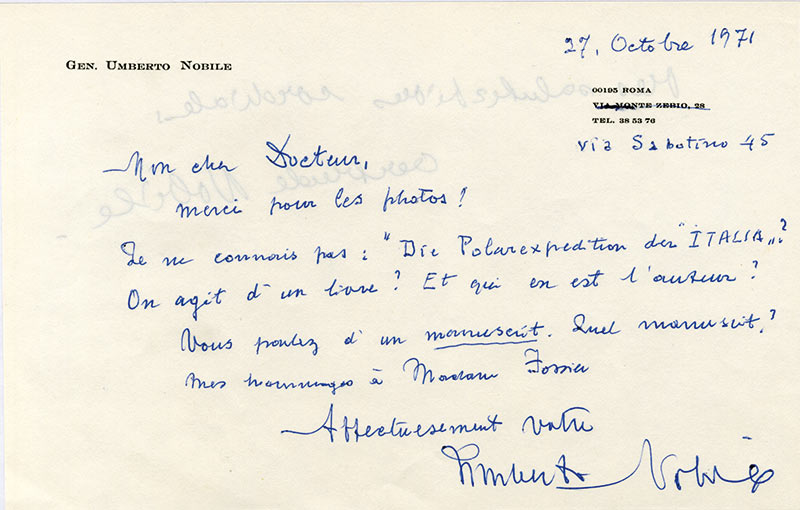 27, Octobre 1971
GEN. UMBERTO NOBILE
00195 ROMA
VIA MONTE ZEBIO, 28
TEL. 38 53 76
via Sabotino 45
Mon cher Docteur,
merci pour les photos!
Je ne connais pas: "Die Polarexpedition der "ITALIA„?
On agit d'un livre? Et qui en est l'auteur?
Vous parlez d'un manuscrit. Quel manuscrit?
Mes hommages à Madame
Affectuesement votre
Umberto Nobile